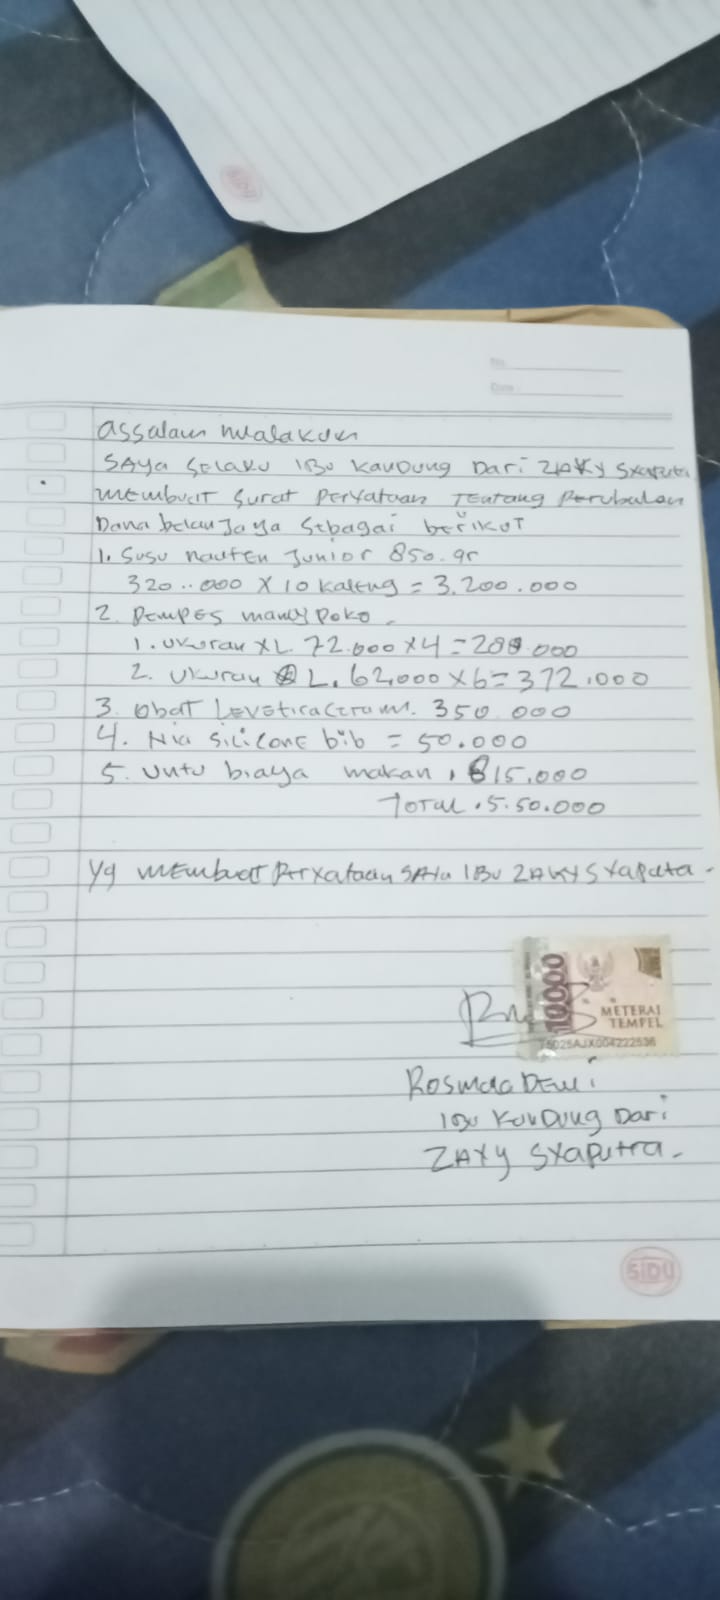 No.
Date :
assalam mualakum
SAYa Selaku IBU Kandung Dari ZAKY SYAPUTRA
Membuat Surat Peryataan Tentang Perubahan
Dana belanja ya Sebagai berikut
1. Susu nauten Junior 850.gr
320..000 X 10 kaleng = 3.200.000
2. Pempes mamy Poko.
1. Ukuran XL. 72.000 X 4 = 288.000
2. Ukuran L. 62,000 X 6 = 372.000
3. Obat Levetiracetram. 350.000
4. Nia silicone bib = 50.000
5. Untu biaya makan. 815.000
Total . 5.50.000
Yg Membuat Peryataan SAYa IBU ZAKY SYaputra.
10000
METERAI
TEMPEL
Rosmda Dewi
IBU Kandung Dari
ZAKY SYaputra.
SIDU